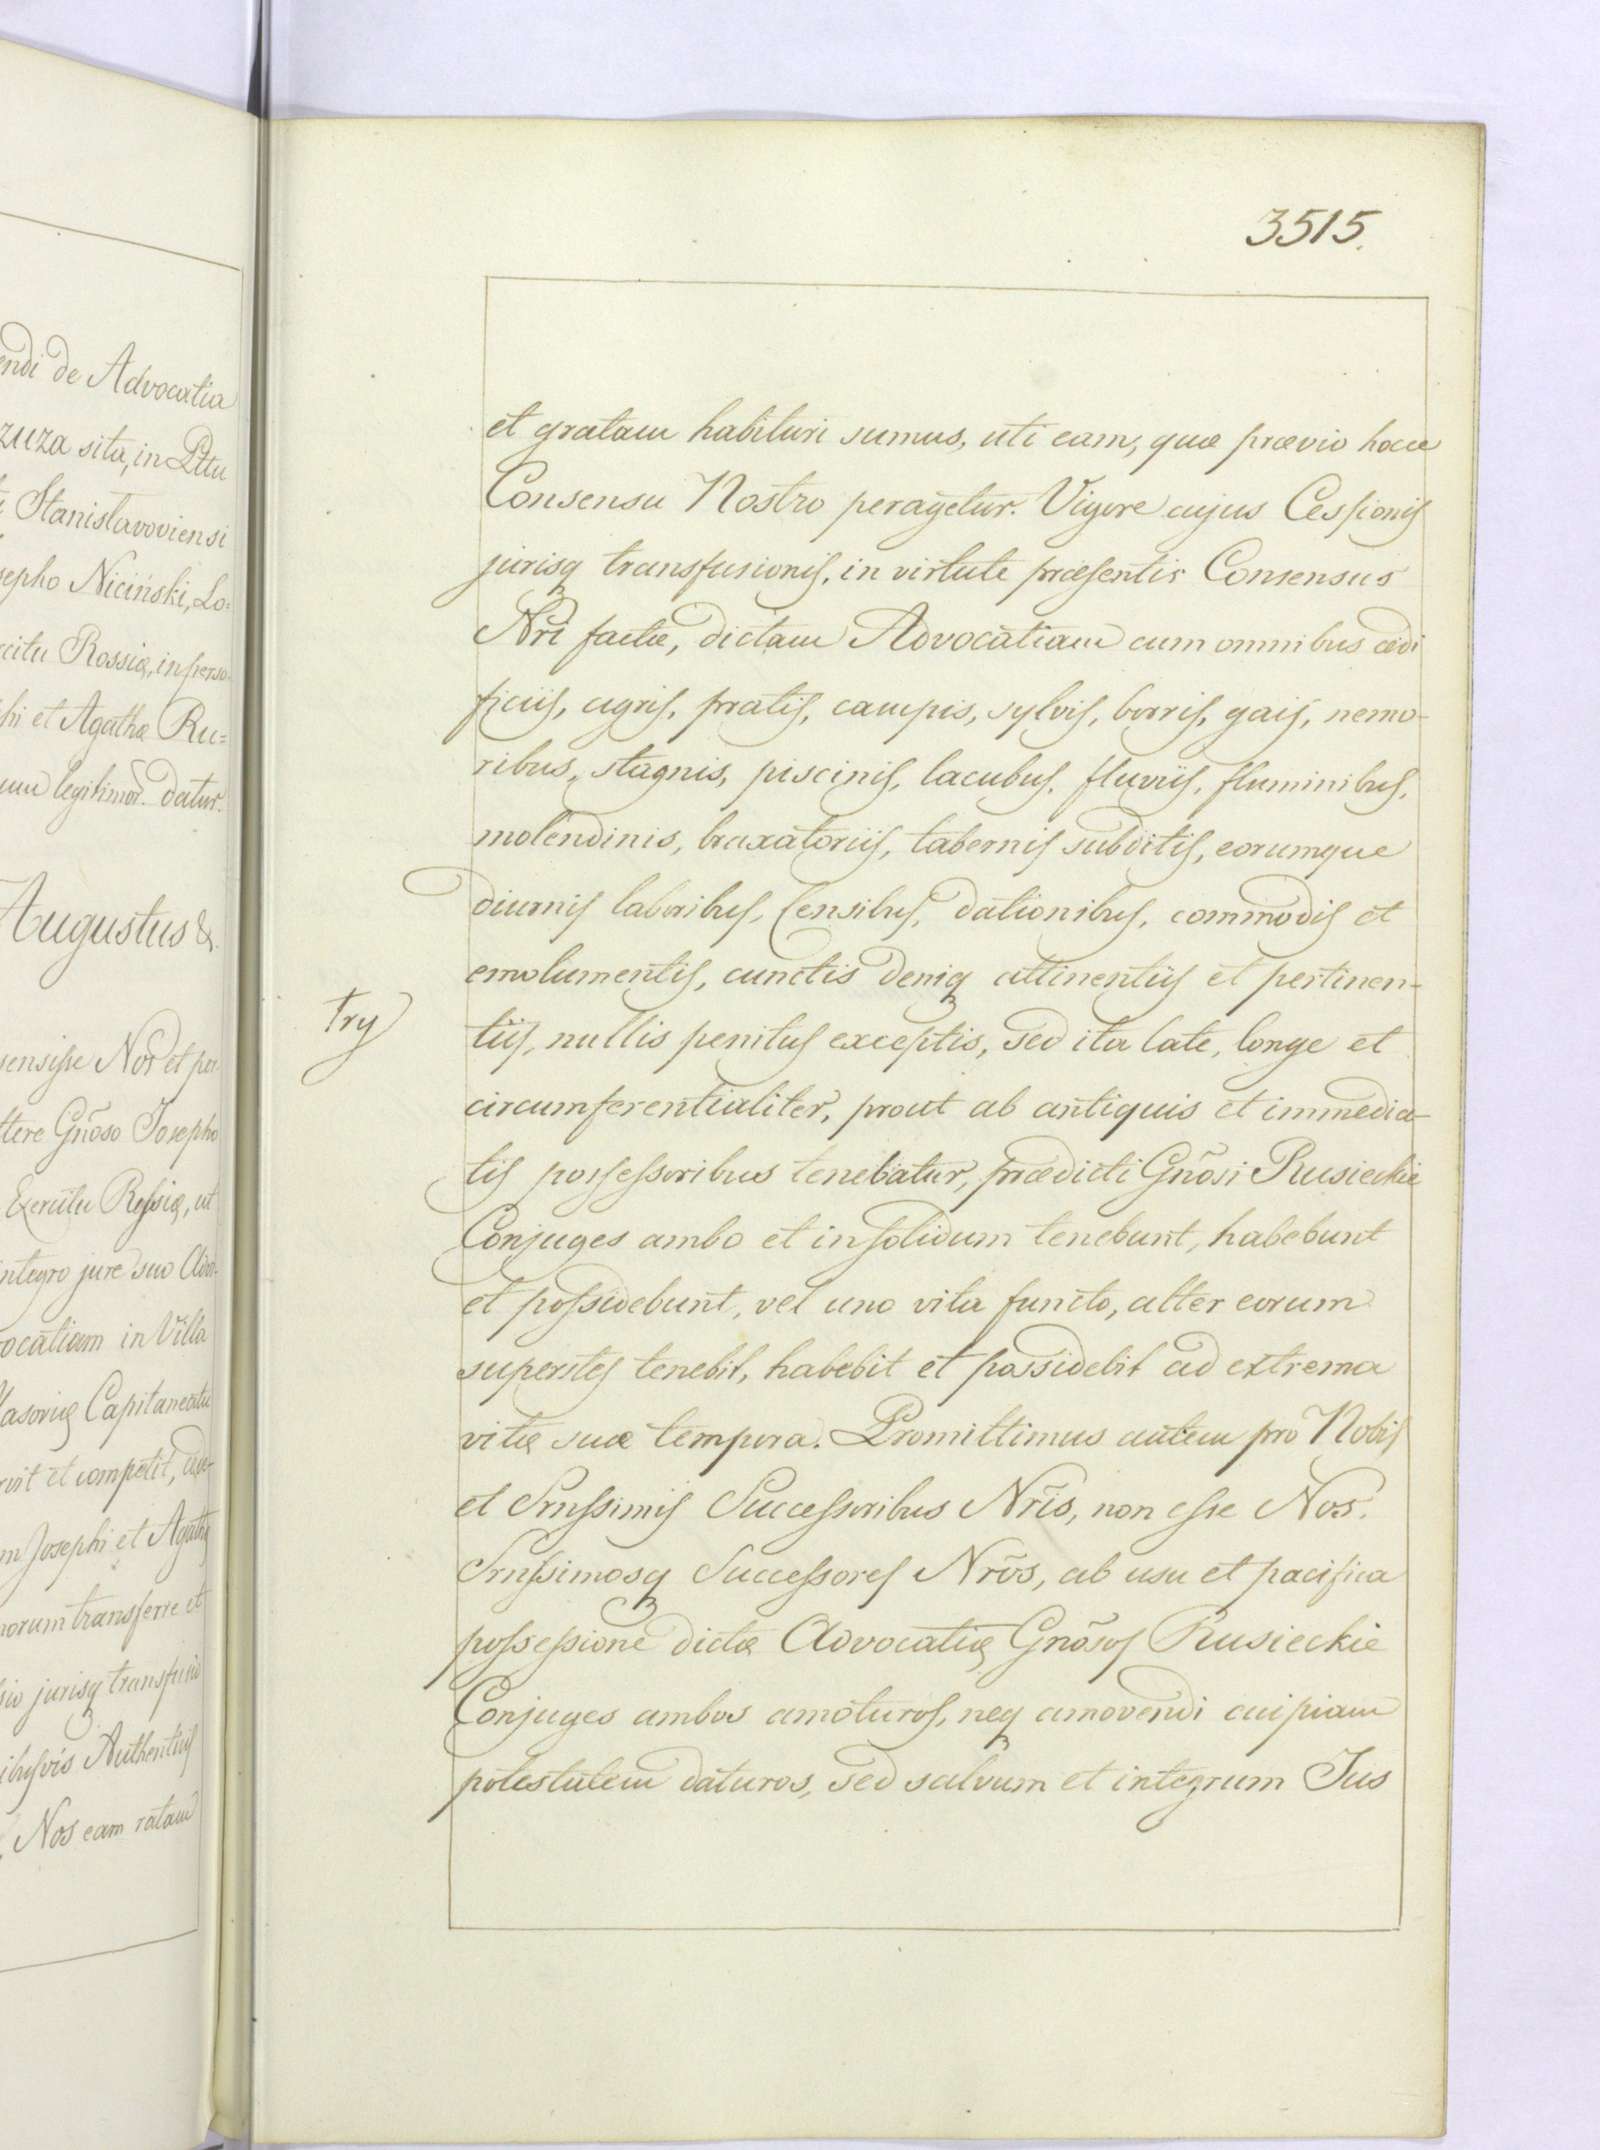 endi de Advocatia
zuza sita, in Pttu
Stanislavoviensi
sepho Niciński, Lo=
citu Rossiæ, in perso-
phi et Agathæ Ru=
um legitimor̃. datur.
Augustus &.
sensisse Nos et per
ttere Gñoso Josepho
Exercitu Rossiæ, ut
integro jure suo Advo-
vocatiam in Villa
Masoviæ Capitaneatu
vit et competit,
m Josephi et Agathæ
norum transferre et
sio jurisq transfusio
ibusvis Authenticis
Nos eam ratam
3515.
et gratam habituri sumus, uti eam, quæ prævio hocce
Consensu Nostro peragetur. Vigore cujus Cessionis
jurisq transfusionis, in virtute præsentis Consensus
Nri factæ, dictam Advocatiam cum omnibus ædi
ficiis, agris, pratis, campis, sylvis, borris, gais, nemo-
ribus, stagnis, piscinis, lacubus, fluviis, fluminibus,
molendinis, braxatoriis, tabernis subditis, eorumque
diurnis laboribus, Censibus, dationibus, commodis et
emolumentis, cunctis deniq attinentiis et pertinen-
try
tiis, nullis penitus exceptis, sed ita late, longe et
circumferentialiter, prout ab antiquis et immedia-
tis possessoribus tenebatur, prædicti Gñosi Rusieckie
Conjuges ambo et insolidum tenebunt, habebunt
et possidebunt, vel uno vita functo, alter eorum
superstes tenebit, habebit et possidebit ad extrema
vitæ suæ tempora. Promittimus autem pro Nobis
et Srnssimis Successoribus Nr̃is, non esse Nos.
Srnssimosq Successores Nr̃os, ab usu et pacifica
possessione dictæ Advocatiæ Gñosos Rusieckie
Conjuges ambos amoturos, neq amovendi cuipiam
potestatem daturos, sed salvum et integrum Jus